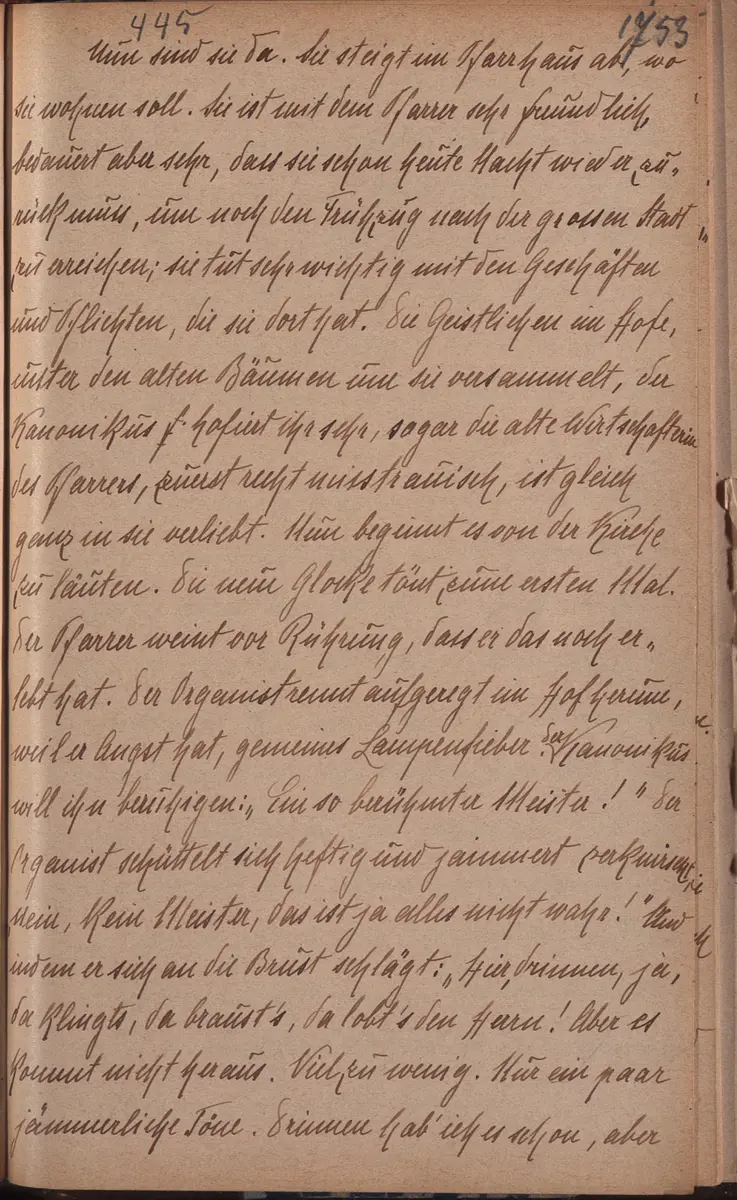 445 1753
Nun sind sie da. Sie steigt im Pfarrhaus ab, wo
sie wohnen soll. Sie ist mit dem Pfarrer sehr freundlich,
bedauert aber sehr, dass sie schon heute Nacht wieder zu-
rück muss, um noch den Frühzug nach der grossen Stadt
zu erreichen; sie tut sehr wichtig mit den Geschäften
und Pflichten, die sie dort hat. Die Geistlichen im Hofe,
unter den alten Bäumen um sie versammelt, der
Kanonikus f. hofiert ihr sehr, sogar die alte Wirtschafterin
des Pfarrers, zuerst recht misstrauisch, ist gleich
ganz in sie verliebt. Nun beginnt es von der Kirche
zu läuten. Die neue Glocke tönt zum ersten Mal.
Der Pfarrer weint vor Rührung, dass er das noch er-
lebt hat. Der Organist rennt aufgeregt im Hof herum,
weil er Angst hat, gemeines Lampenfieber. Der Kanonikus
will ihn beruhigen: „Ein so berühmter Meister!" Der
Organist schüttelt sich heftig und jammert zerknirscht,
nein, kein Meister, das ist ja alles nicht wahr!" Und
indem er sich an die Brust schlägt: „Hier drinnen, ja,
da klingts, da braust's, da lobt's den Herrn! Aber es
kommt nicht heraus. Viel zu wenig. Nur ein paar
jämmerliche Töne. Drinnen hab' ich es schon, aber